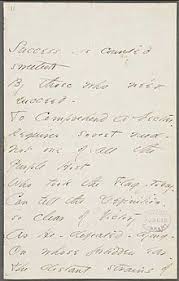 Success is counted
sweetest
By those who ne'er
succeed.
To Comprehend a nectar
Requires sorest need.
Not one of all the
Purple Host
Who took the Flag today
Can tell the Definition
so clear of Victory
As he defeated dying
On whose forbidden ear
The distant strains of